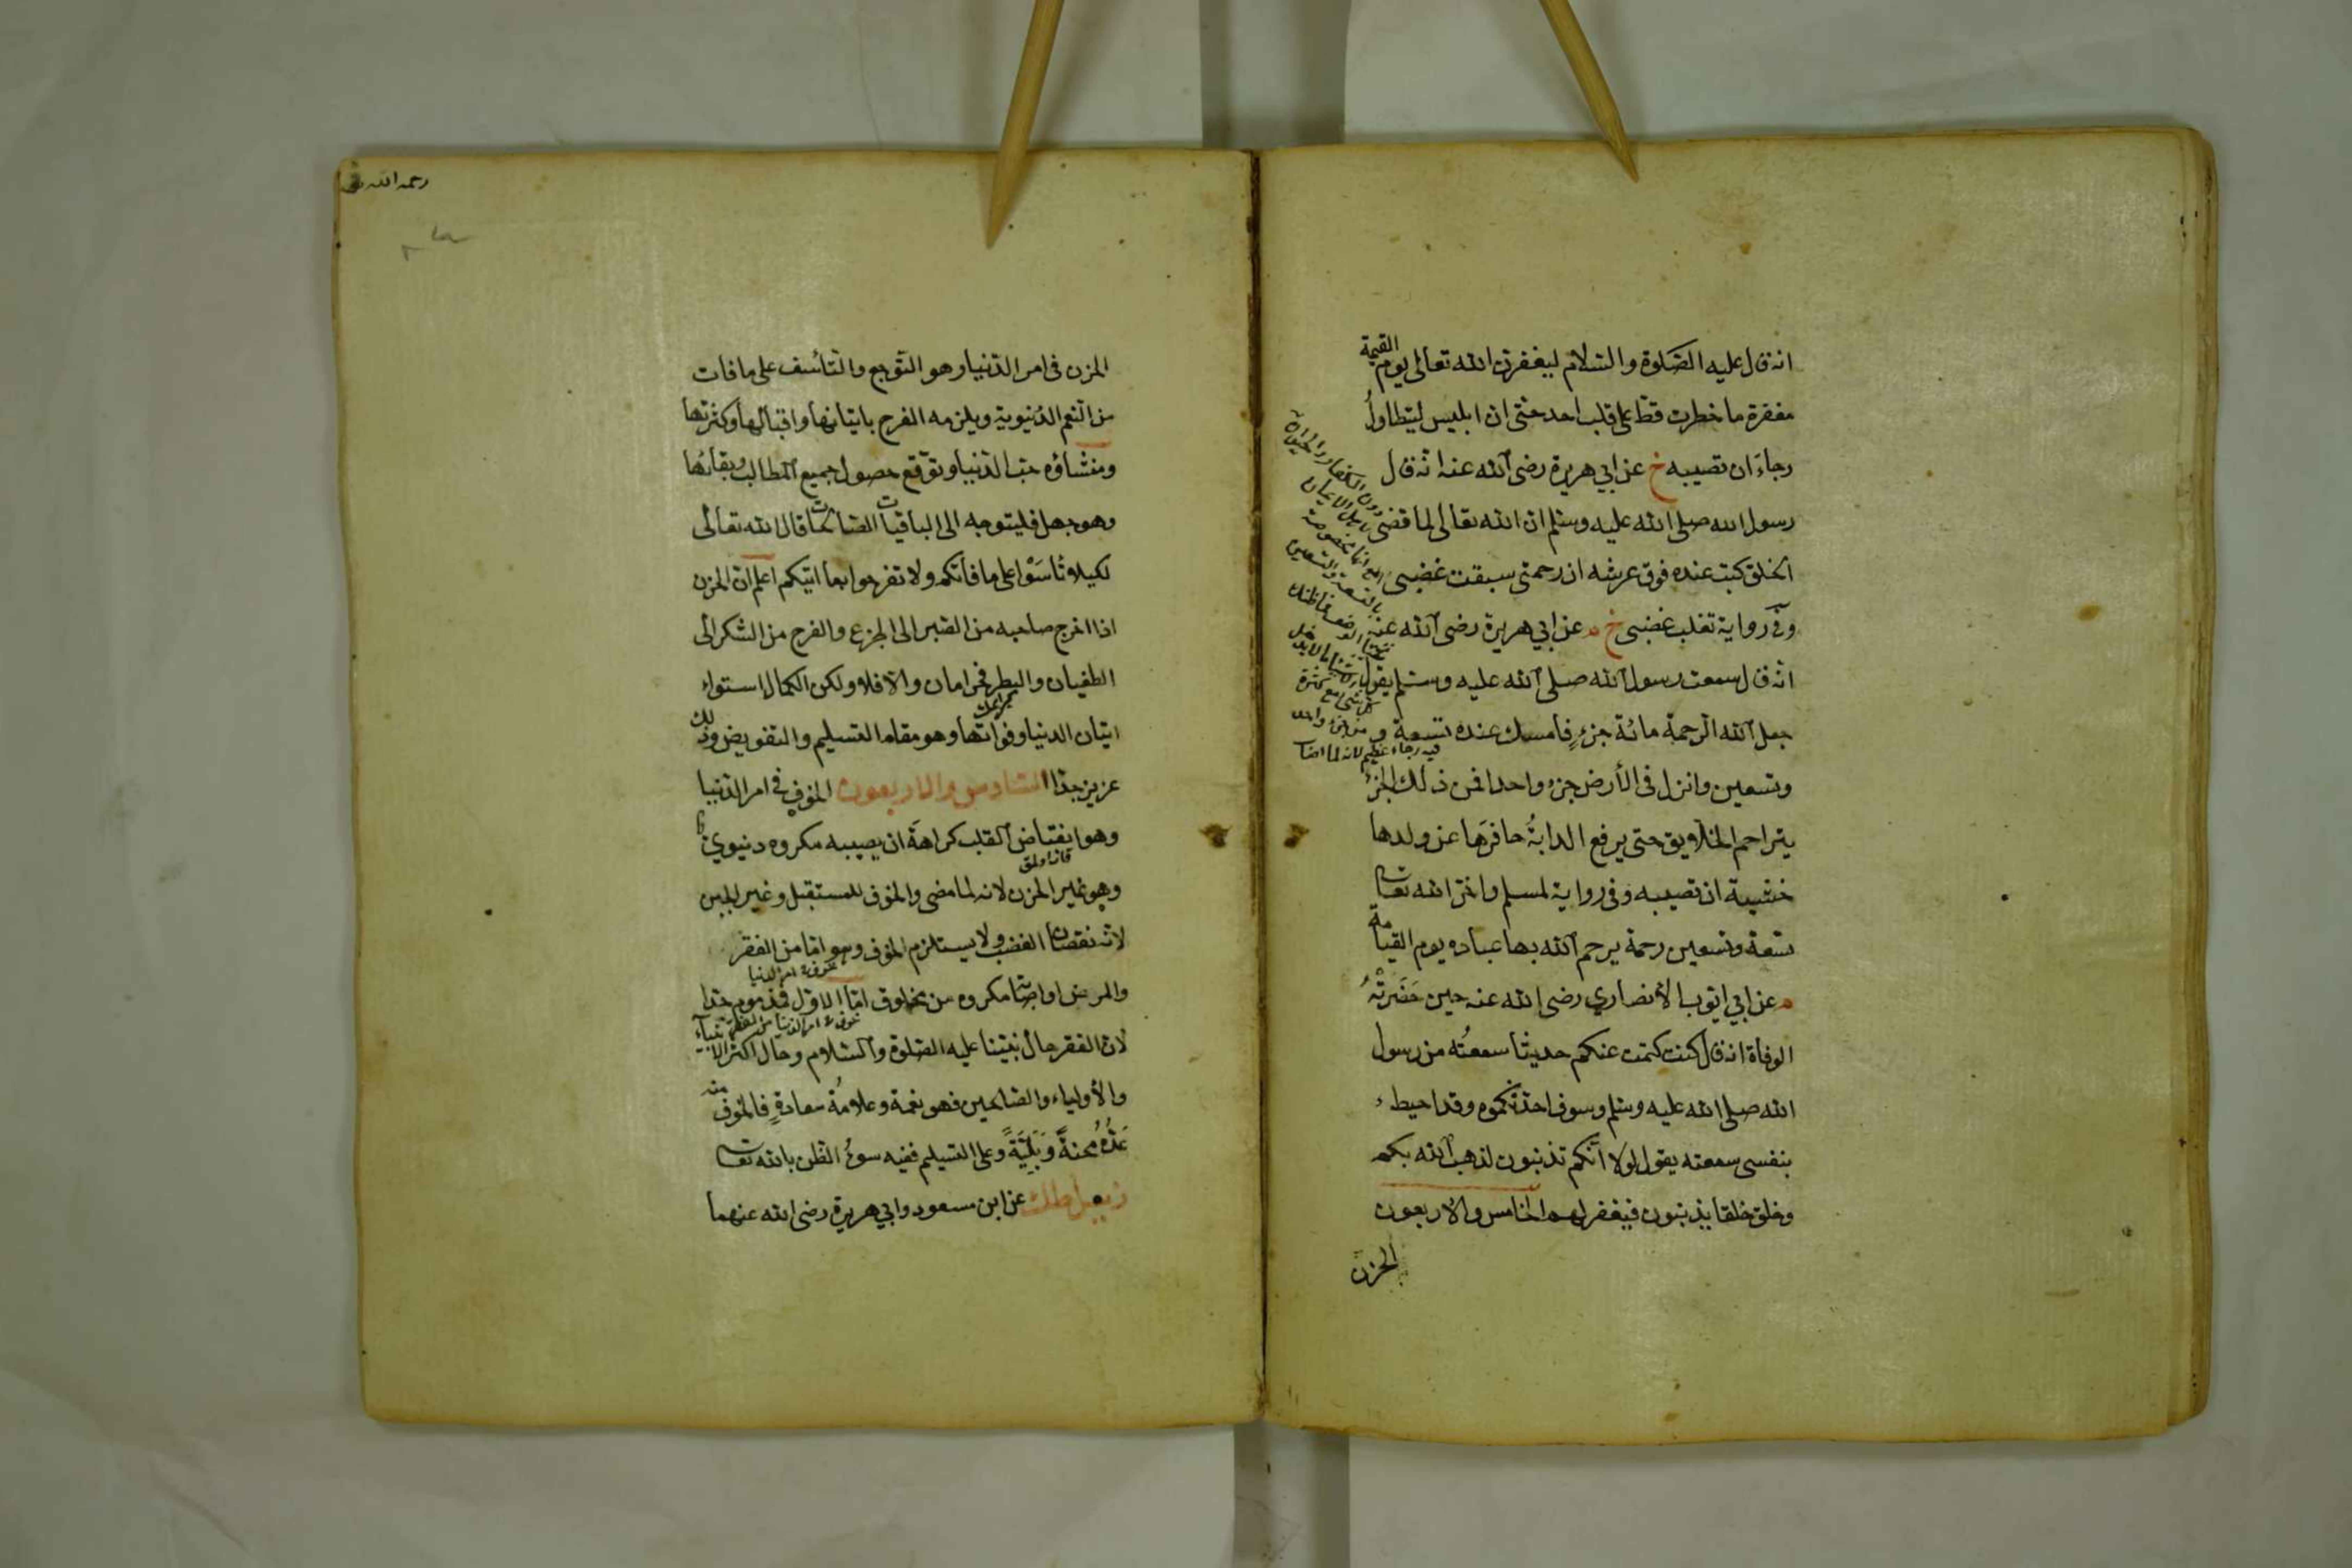 انه قال عليه الصّلوة والسّلام ليغفرنّ الله تعالى يوم القيمة
مغفرة ما خطرت قطّ على قلب احد حتى ان ابليس ليتطاولُ
رجاءَ ان تصيبه خ عن ابي هريرة رضى الله عنه انّه قال
رسول الله صلى الله عليه وسلم ان الله تعالى لما قضى
الخلق كتب عنده فوق عرشه ان رحمتى سبقت غضبى
وفى رواية تغلب غضبى خ م عن ابي هريرة رضى الله عنه
انّه قال سمعت رسول الله صلى الله عليه وسلم يقول
جعل الله الرّحمة مائة جزءٍ فامسك عنده تسعة و
وتسعين وانزل فى الأرض جزء واحدا فمن ذلك الجزء
يتراحم الخلايق حتى يرفع الدابةُ حافرَها عن ولدها
خشية ان تصيبه وفى رواية لمسلم واخّر الله تعالى
تسعة وتسعين رحمة يرحم الله بها عباده يوم القيامة
م عن ابي ايّوب الأنصاري رضى الله عنه حين حَضَرَتْهُ
الوفاة انه قال كنت كتمت عنكم حديثا سمعتُه من رسول
الله صلى الله عليه وسلم وسوف احدّثكموه وقد احيط
بنفسى سمعته يقول لولا انّكم تذنبون لذهب الله بكم
وخلق خلقا يذنبون فيغفر لهم الخامس والاربعون
الحزن
رحمه الله
الحزن فى امر الدّنيا وهو التّوجع والتّأسف على ما فات
من النّعم الدّنيوية ويلزمه الفرح باتيانها واقبالها وكثرتها
ومنشاؤه حبّ الدّنيا وتوقّع حصول جميع المطالب وبقائها
وهو جهل فليتوجه الى الباقيات الصّالحات قال الله تعالى
لكيلا تأسَوْا على ما فاتكم ولا تفرحوا بما اتيكم اعلم ان الحزن
اذا اخرج صاحبه من الصّبر الى الجزع والفرح من الشّكر الى
الطغيان والبطر فحرامان والّا فلا ولكن الكمال استواء
اتيان الدنيا وفواتها وهو مقام التسليم والتفويض وذلك
عزيز جدّا السّادس والاربعون الخوف فى امر الدّنيا
وهو انقباض القلب كراهةَ ان يصيبه مكروه دنيوي
وهو غير الحزن لانه لما مضى والخوف للمستقبل وغير الجبن
لانّه نقصان الغضب ولا يستلزم الخوف وهو امّا من الفقر
والمرض او اصابة مكروه من مخلوق امّا الاوّل فمذموم جدّا
لان الفقر حال نبيّنا عليه الصّلوة والسّلام وحال اكثر الانبياء
والأولياء والصّالحين فهو نعمة وعلامةُ سعادةٍ فالخوف منه
عَدُّهُ محنةً وَبَلِيَّةً وعلى التسليم ففيه سوءُ الظّن بالله تعالى
ز يعلى طك عن ابن مسعود وابي هريرة رضى الله عنهما